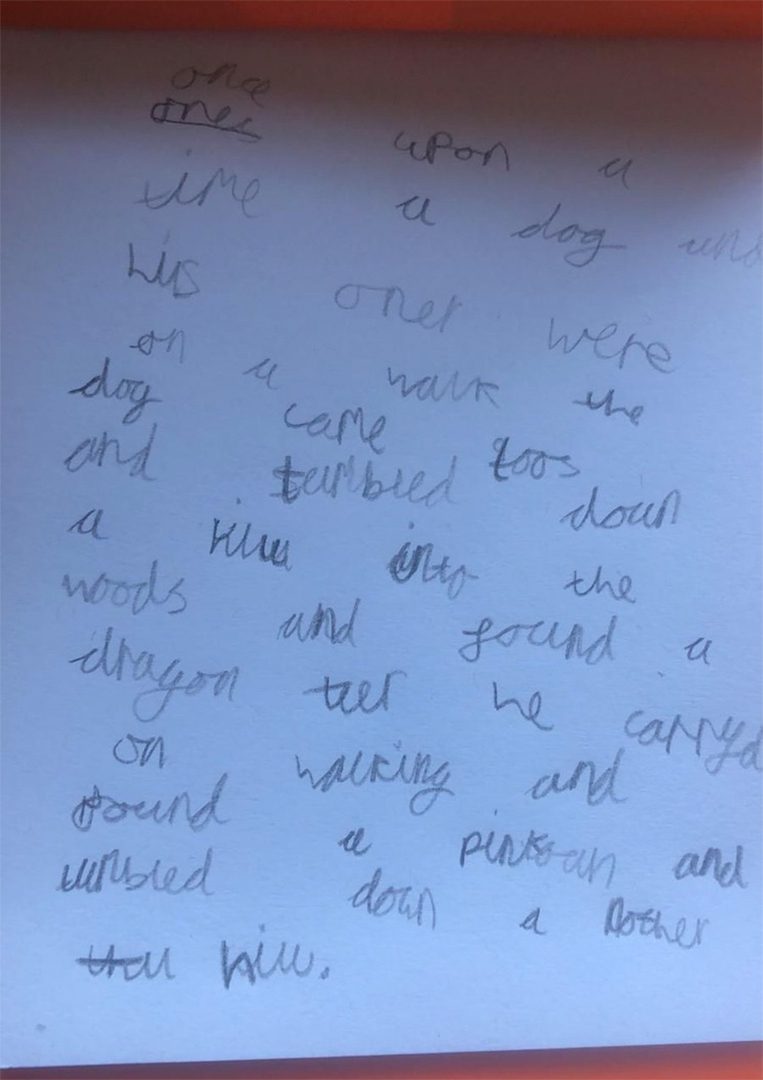 once
ones upon a
time a a dog and
his oner were
on a walk the
dog came toos
and tumbled down
a hill into the
woods and found a
dragon he carryd
on walking and
found a and
tumbled down a nother
hill.